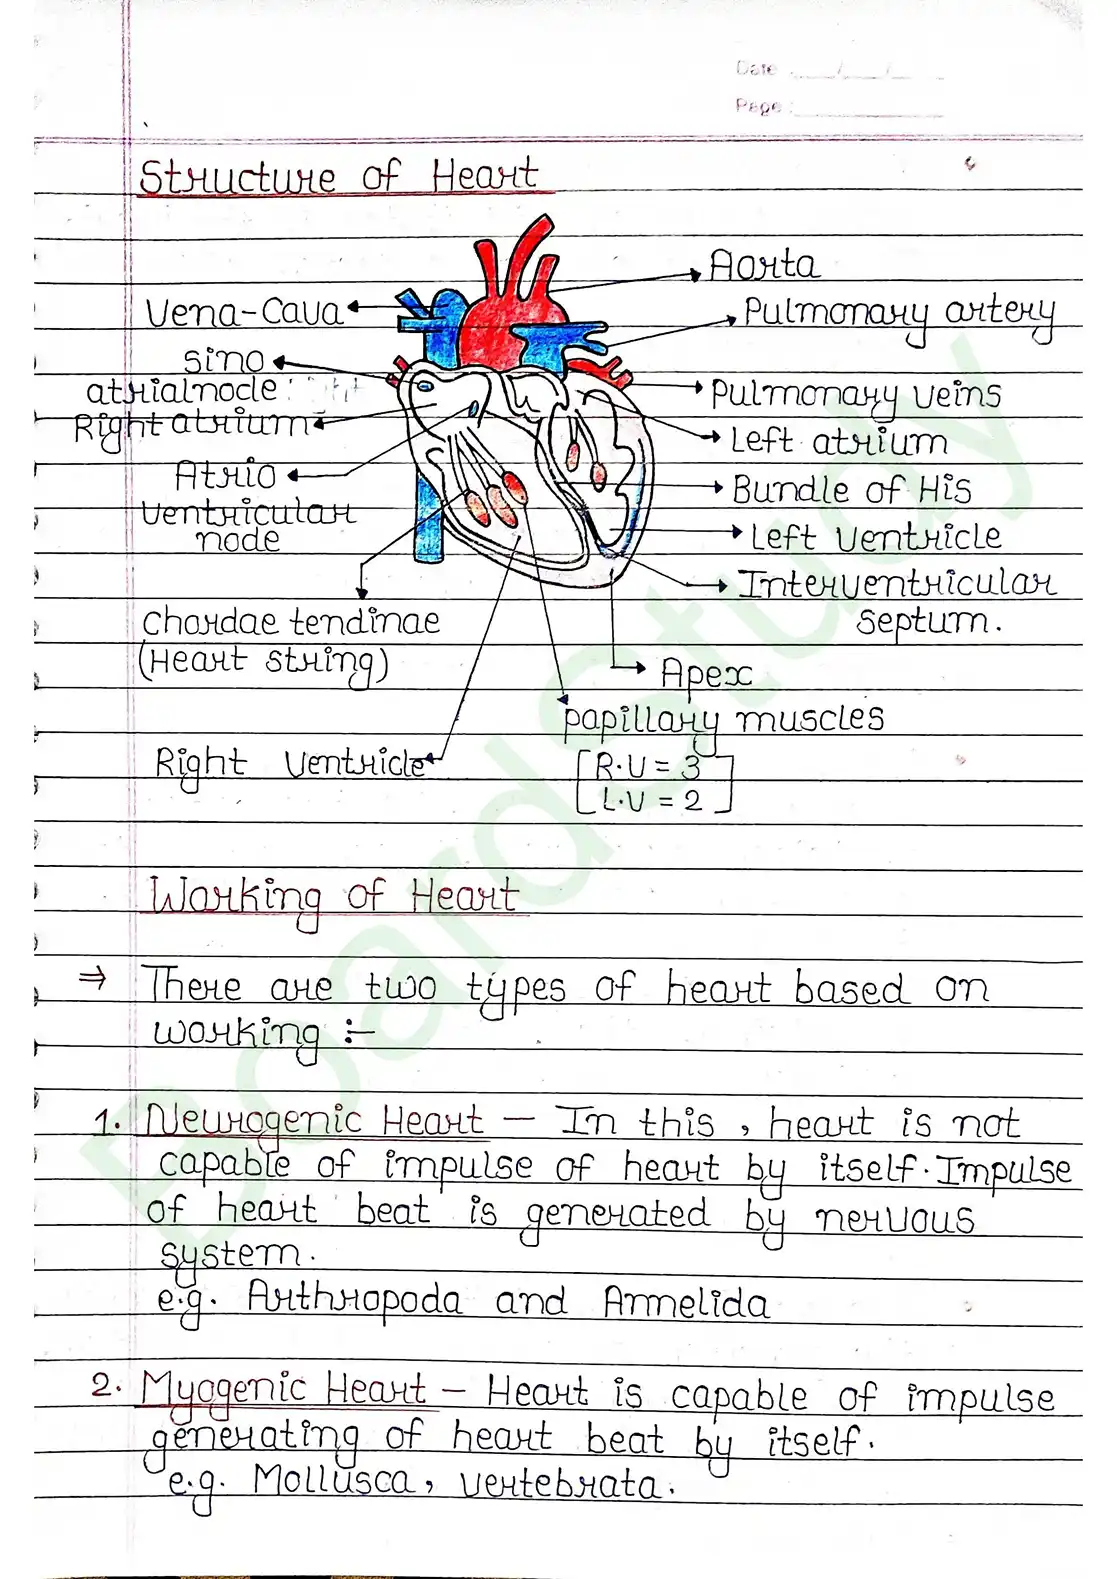 Date : ___/___/___
Page :
Structure of Heart
Aorta
Vena-Cava
Pulmonary artery
sino
atrialnode
Pulmonary veins
Right atrium
Left atrium
Atrio
ventricular
node
Bundle of His
Left Ventricle
Interventricular
septum.
Chordae tendinae
(Heart string)
Apex
papillary muscles
Right Ventricle
[R.V = 3]
[L.V = 2]
Working of Heart
⇒ There are two types of heart based on
working :-
1. Neurogenic Heart - In this , heart is not
capable of impulse of heart by itself. Impulse
of heart beat is generated by nervous
system.
e.g. Arthropoda and Annelida
2. Myogenic Heart - Heart is capable of impulse
generating of heart beat by itself.
e.g. Mollusca, vertebrata.
BoardStudy